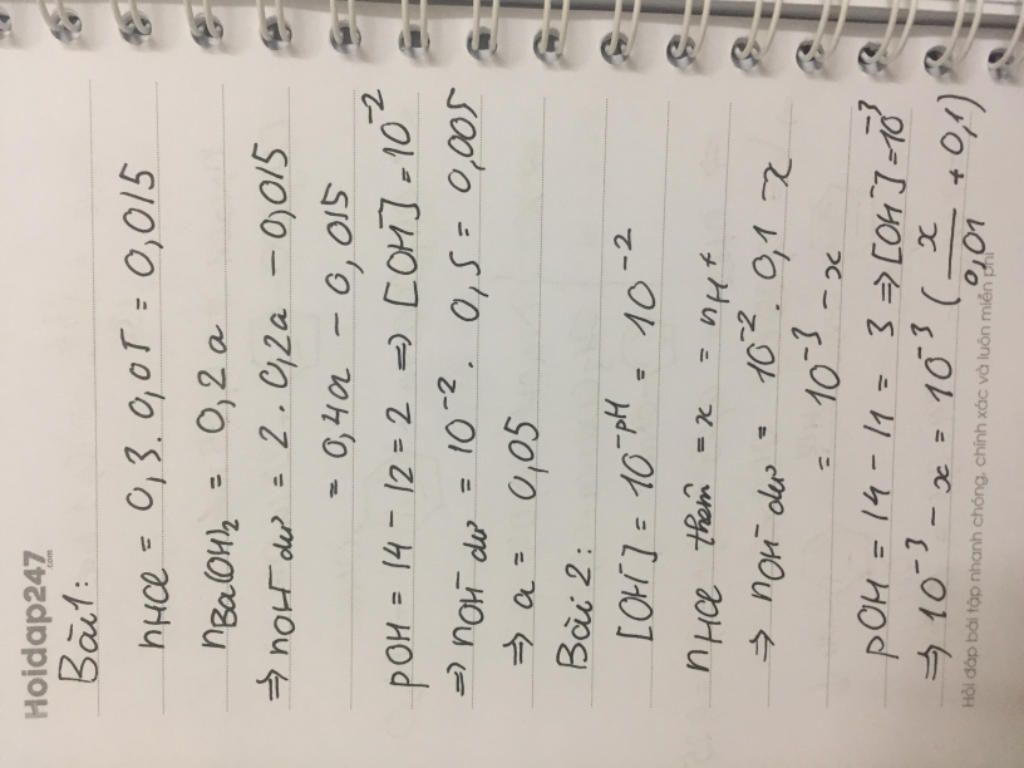 Hoidap247
.com
Bài 1:
nHCl = 0,3. 0,05 = 0,015
nBa(OH)₂ = 0,2a
⇒ nOH⁻ dư = 2. 0,2a - 0,015
= 0,4a - 0,015
pOH = 14 - 12 = 2 ⇒ [OH⁻] = 10⁻²
⇒ nOH⁻ dư = 10⁻². 0,5 = 0,005
⇒ a = 0,05
Bài 2:
[OH⁻] = 10⁻ᵖᴴ = 10⁻²
nHCl thêm = x = nH⁺
⇒ nOH⁻ dư = 10⁻². 0,1 - x
= 10⁻³ - x
pOH = 14 - 11 = 3 ⇒ [OH⁻] = 10⁻³
⇒ 10⁻³ - x = 10⁻³ (x/0,01 + 0,1)
Hỏi đáp bài tập nhanh chóng, chính xác và luôn miễn phí